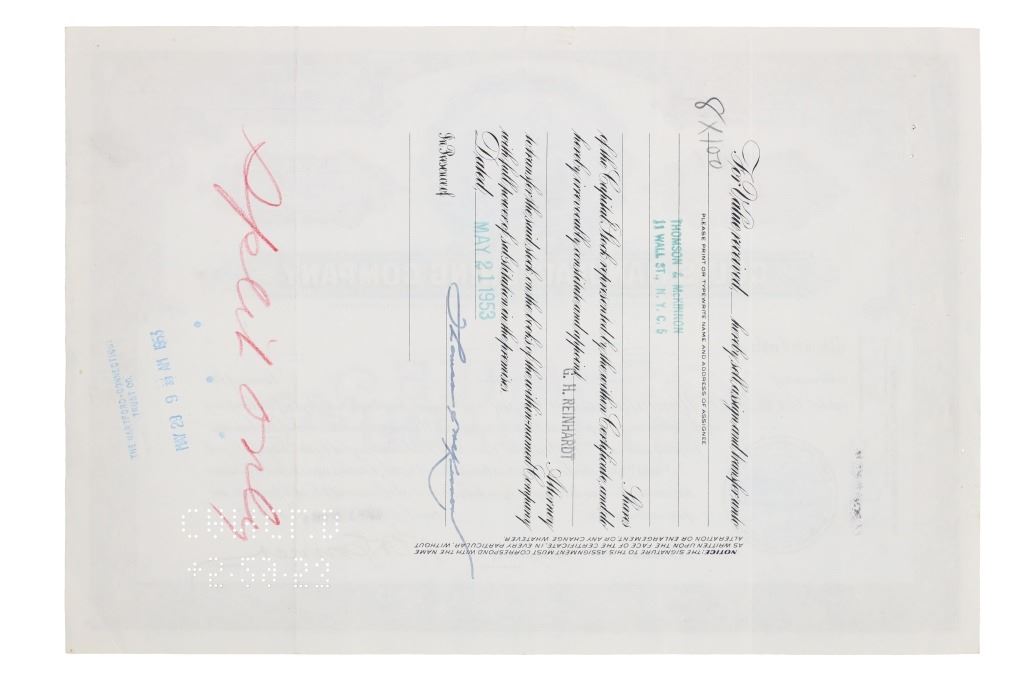 8 X 100
For Value received, hereby sell, assign and transfer unto
PLEASE PRINT OR TYPEWRITE NAME AND ADDRESS OF ASSIGNEE
THOMSON & McKINNON
11 WALL ST., N. Y. C. 5
Shares
of the Capital Stock represented by the within Certificate, and do
hereby irrevocably constitute and appoint
G. H. REINHARDT
Attorney
to transfer the said stock on the books of the within-named Company
with full power of substitution in the premises.
Dated, MAY 21 1953
Thomson & McKinnon
In Presence of
NOTICE: THE SIGNATURE TO THIS ASSIGNMENT MUST CORRESPOND WITH THE NAME
AS WRITTEN UPON THE FACE OF THE CERTIFICATE, IN EVERY PARTICULAR, WITHOUT
ALTERATION OR ENLARGEMENT OR ANY CHANGE WHATEVER.
Split only
AM 1953
TRUST CO